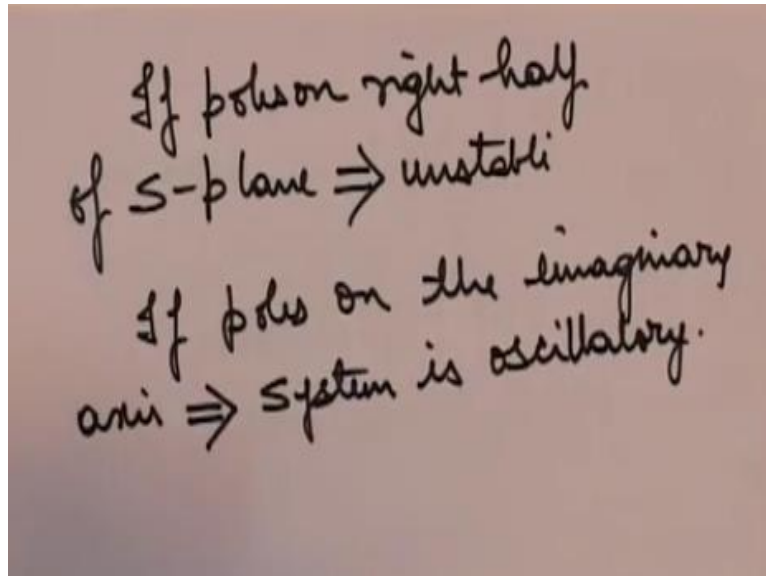 If poles on right half
of s-plane ⇒ unstable
If poles on the imaginary
axis ⇒ system is oscillatory.